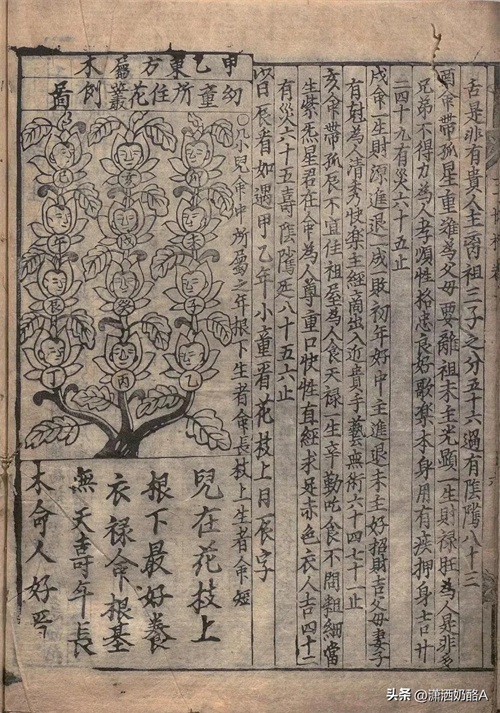 舌是非有貴人主二商祖三子之分五十六過有陰隲八十三
酉命帶孤星重難為父母要離祖末主光顯一生財祿旺為人是非多
兄弟不得力為人孝順性格忠良好歌樂本身用有疾押身吉廿
二四十九有災六十五止
戌命一生財源進退一成一敗初年好中主進退末主好招財吉父母妻子
有尅為清秀快樂主經商出入近貴手藝無術六十四七十止
亥命帶孤辰不宜住祖屋為人食天祿一生辛勤吃食不問粗細當
生紫炁星君在命為人尊重口快性直經求足赤色衣人吉四十二
有災六十五壽陰隲延八十五六止
甲乙東方屬木
幼童所住花叢例圖
○凡小兒命中所屬之年根下生者命長枝上生者命短
日辰看如遇甲乙年小童看花枝上目一辰字
卯
子
乙
戌
癸
丙
午
辰
丁
兒在花枝上
根下最好養
衣祿命根基
無夭壽年長
木命人好
头条 @潇洒奶酪A